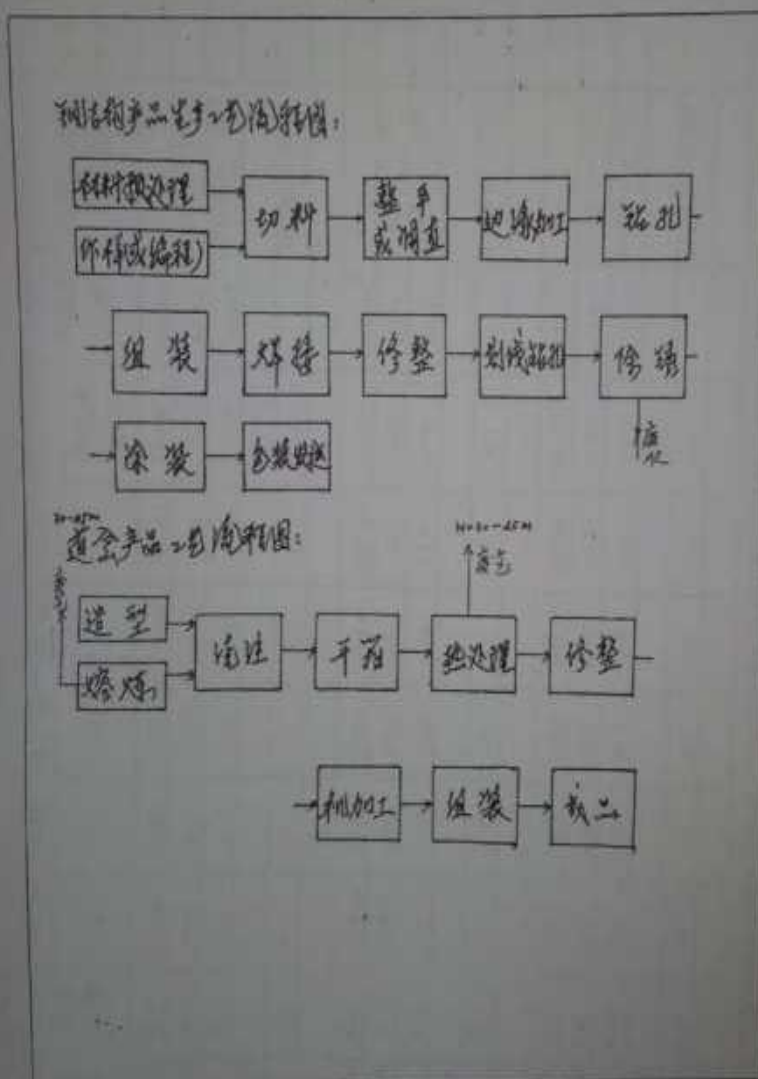 钢结构产品生产工艺流程图：
材料预处理
作样(或编程)
切料
整平
或调直
边缘加工
钻孔
组装
焊接
修整
划线钻孔
除锈
涂装
包装发送
产品工艺流程图：
H=20-25M
废气
造型
熔炼
浇注
热处理
修整
机加工
组装
成品